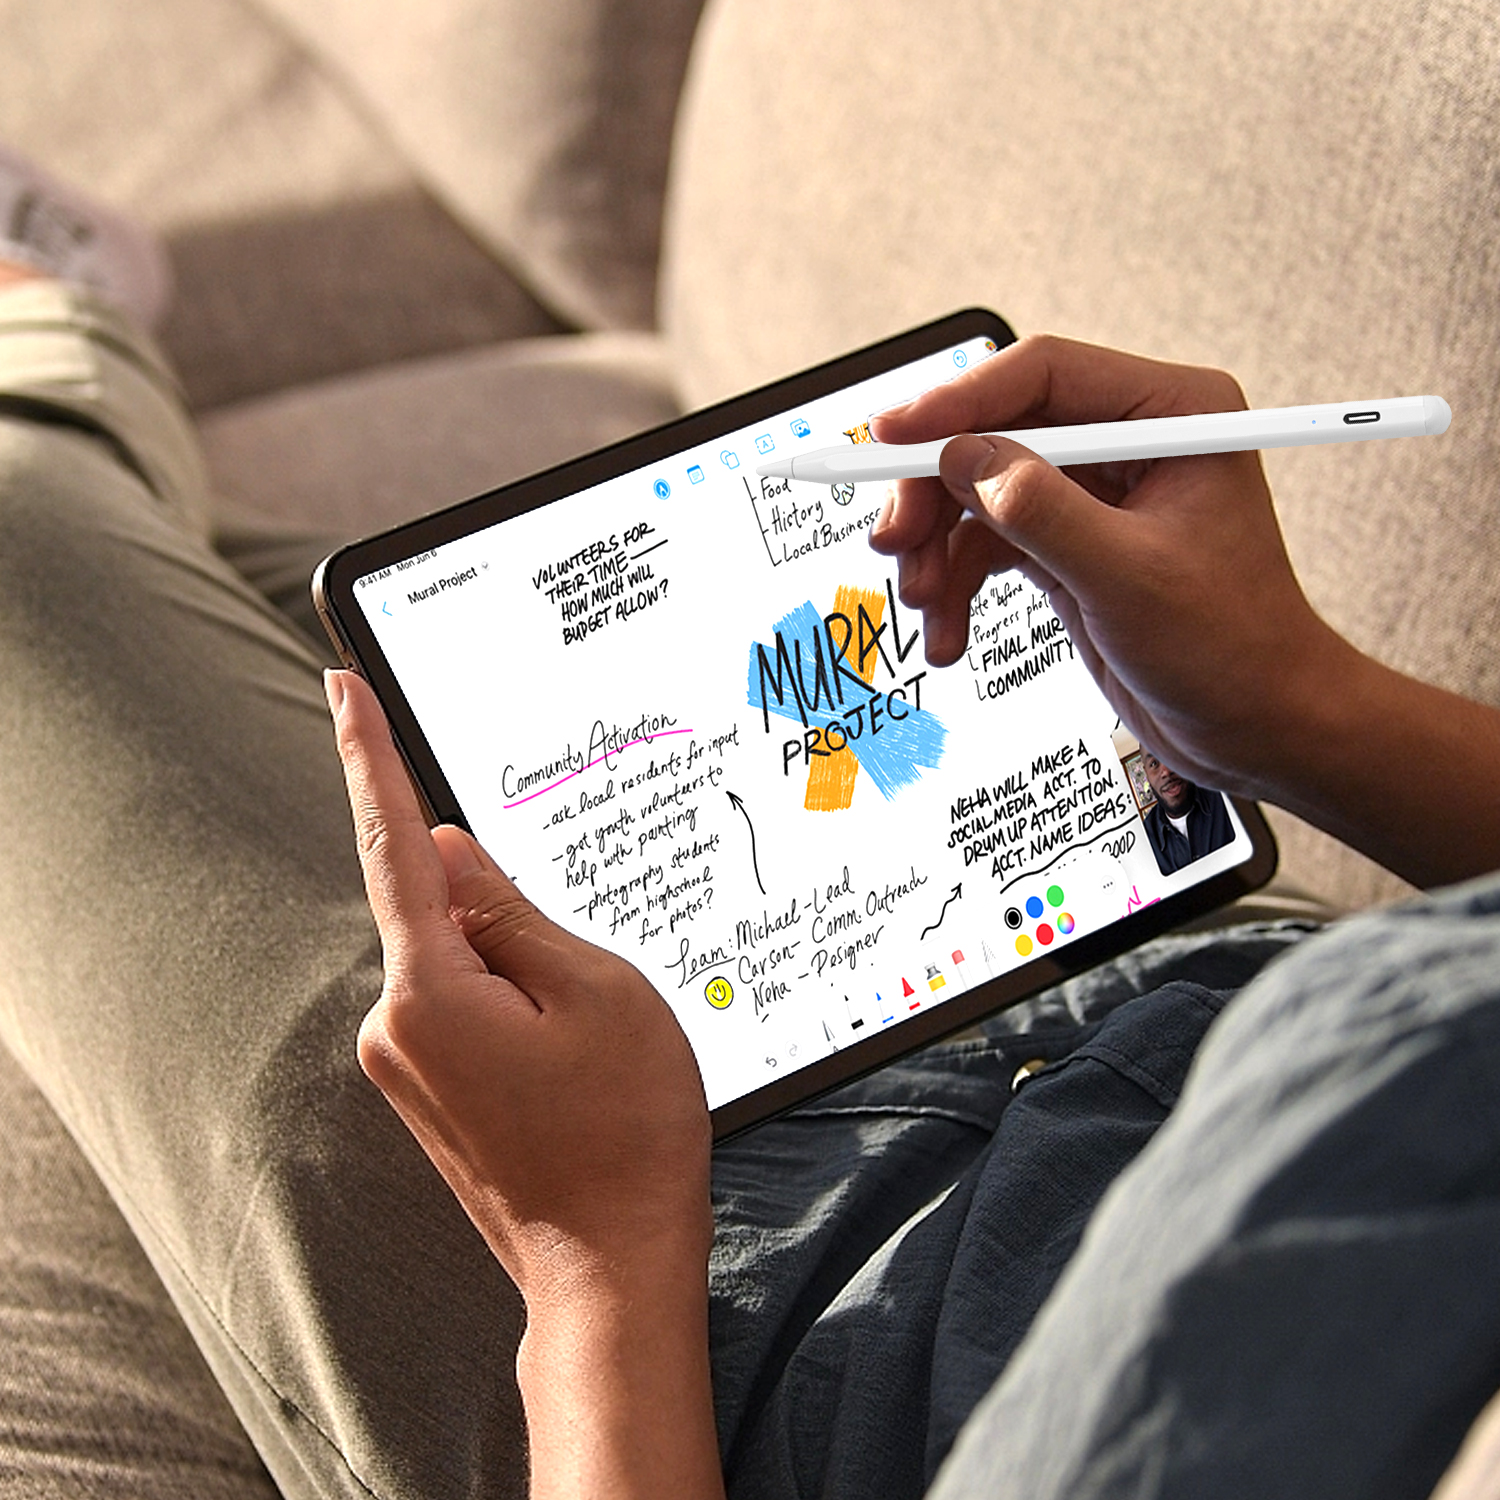 9:41 AM Mon Jun 6
Mural Project
VOLUNTEERS FOR
THEIR TIME
HOW MUCH WILL
BUDGET ALLOW?
Food
History
Local Business
MURAL
PROJECT
site "before
Progress
FINAL
COMMUNITY
Community Activation
-ask local residents for input
-get youth volunteers to
help with painting
-photography students
from highschool
for photos?
Team: Michael-Lead
Carson- Comm. Outreach
Neha - Designer
NEHA WILL MAKE A
SOCIAL MEDIA ACCT. TO
DRUM UP ATTENTION.
ACCT. NAME IDEAS: